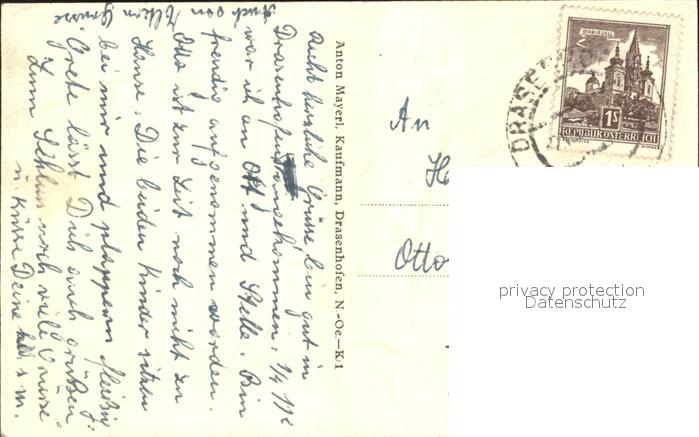 Recht herzliche Grüsse, bin gut in
Drasenhofen angekommen. 1/4 11h
war ich an Ort und Stelle. Bin
freudig aufgenommen worden.
Otto ist zur Zeit noch nicht zu
Hause. Die beiden Kinder sitzen
bei mir und plappern fleißig.
Grete lässt Dich auch grüßen
Zum Schluss noch viele Grüsse
u. Küsse Deine
Auch von Eltern Grüsse
Anton Mayerl, Kaufmann, Drasenhofen, N.-Oe.—K/1
An
H
Otto
MARIAZELL
1S
REPUBLIK ÖSTERREICH
DRASE
privacy protection
Datenschutz